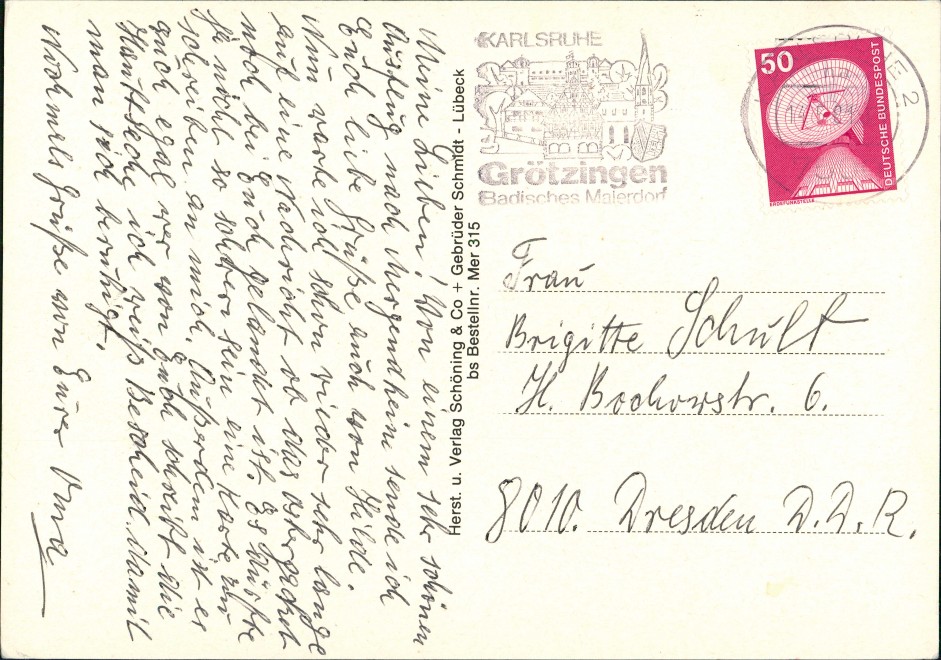 Meine Lieben! Von einem sehr schönen
Ausflug nach Mergentheim sende ich
Euch liebe Grüße auch von Hilde.
Nun warte ich schon wieder sehr lange
auf eine Nachricht ob das Osterpaket
noch bei Euch gelandet ist. Es dürfte
ja nicht so schwer sein eine Karte zu
schreiben an mich. Außerdem ist es
auch egal wer von Euch schreibt die
Hauptsache ich weiß Bescheid. damit
man sich beruhigt.
Nochmals Grüße von Eurer Oma
Herst. u. Verlag Schöning & Co + Gebrüder Schmidt - Lübeck
bs Bestellnr. Mer 315
KARLSRUHE
Grötzingen
Badisches Malerdorf
50
DEUTSCHE BUNDESPOST
ERDFUNKSTELLE
Frau
Brigitte Schult
H. Bochowstr. 6.
8010. Dresden D.D.R.